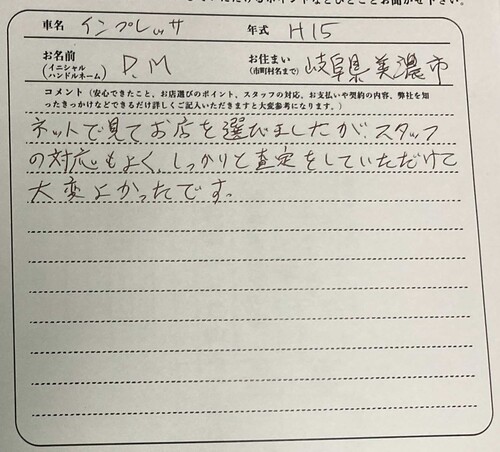 車名 インプレッサ 年式 H15
お名前 (イニシャル ハンドルネーム) D.M お住まい (市町村名まで) 岐阜県美濃市
コメント（安心できたこと、お店選びのポイント、スタッフの対応、お支払いや契約の内容、弊社を知
ったきっかけなどできるだけ詳しくご記入いただきますと大変参考になります。）
ネットで見てお店を選びましたが、スタッフ
の対応もよく、しっかりと査定をしていただけて
大変よかったです。